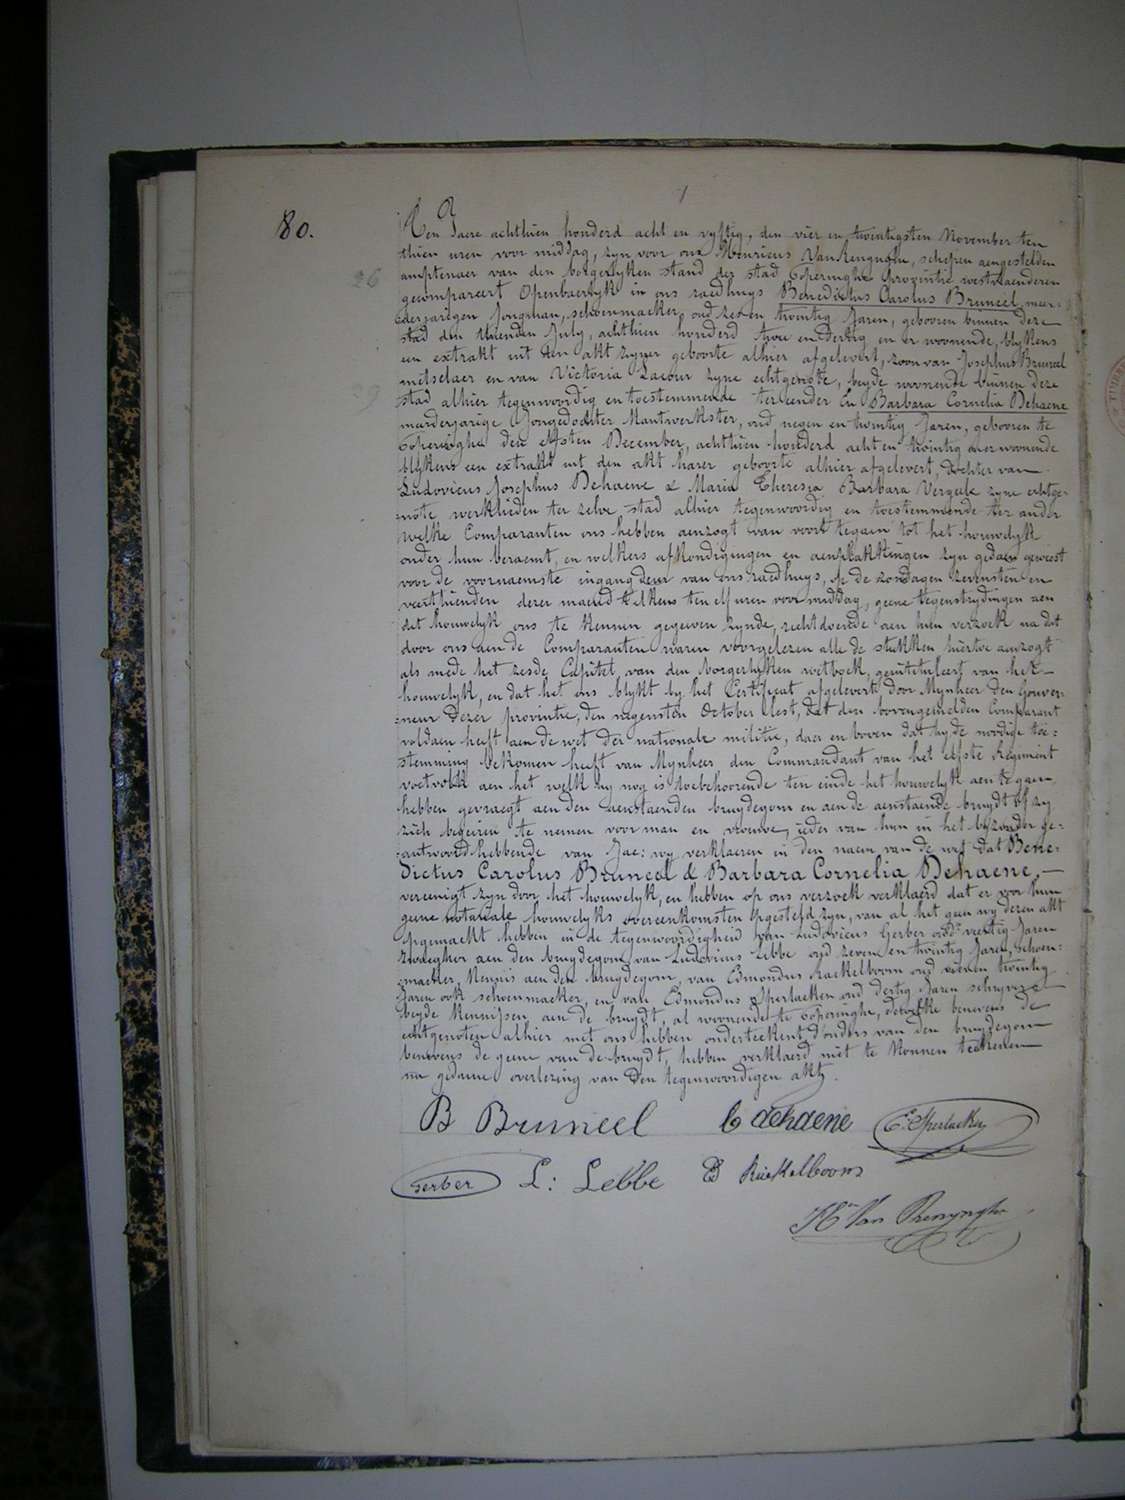 80.
Ten Jaere achthien honderd acht en vyftig, den vier en twintigsten November ten
thien uren voor middag, zyn voor ons Henricus Van Renynghe, schepen aengestelden
26
amptenaer van den borgerlyken stand der stad Poperinghe Provintie westvlaenderen
gecompareert Openbaerlyk in ons raedhuys Benedictus Carolus Bruneel, meer-
derjarigen Jongman, schoenmacker, oud zes en twintig Jaren, gebooren binnen deze
stad den thienden July, achthien honderd twee en dertig en er woonende, blykens
een extrakt uit den akt zyner geboorte alhier afgelevert, zoon van Josephus Bruneel
29
metselaer en van Victoria Lacour zyne echtgenote, beyde woonende binnen deze
stad alhier tegenwoordig en toestemmende ter eender En Barbara Cornelia Dehaene
meerderjarige Jongedochter Hantwerkster, oud negen en twintig Jaren, gebooren te
Poperinghe den elfsten December, achthien honderd acht en twintig en er woonende
blykens een extrakt uit den akt harer geboorte alhier afgelevert, dochter van
Ludovicus Josephus Dehaene & Maria Theresia Barbara Vergeele zyne echtge-
note werklieden ter zelve stad alhier tegenwoordig en toestemmende ter ander
welke Comparanten ons hebben aenzogt van voort tegaen tot het houwelyk
onder hun beraemt, en welkers afkondigingen en aenplakkingen zyn gedaen geweest
voor de voornaemste ingang deur van ons raedhuys, op de zondagen zevensten en
veerthienden dezer maend telkens ten elf uren voor middag, geene tegenstrydingen aen
dit houwelyk ons te kennen gegeven zynde, rechtdoende aen hun verzoek na dat
door ons aen de Comparanten waren voorgelezen alle de stukken hiertoe aenzogt
als mede het zesde Capitel, van den borgerlyken wetboek, geintituleert van het
houwelyk, en dat het ons blykt by het Certificat afgelevert door Mynheer den Gouver-
neur dezer provintie, den negensten October lest, dat den bovengemelden Comparant
voldaen heeft aen de wet der nationale militie, daer en boven dat hy de noodige toe-
stemming bekomen heeft van Mynheer den Commandant van het elfste Regiment
voetvolk aen het welk hy nog is toebehoorende ten einde het houwelyk aen te gaen
hebben gevraegt aen den aenstaenden bruydegom en aen de aenstaende bruydt of zy
zich begeiren te nemen voor man en vrouwe, ieder van hun in het byzonder ge-
antwoord hebbende van Jae: wy verklaeren in den naem van de wet dat Bene-
dictus Carolus Bruneel & Barbara Cornelia Dehaene,
vereenigt zyn door het houwelyk, en hebben op ons verzoek verklaerd dat er voor hun
geene notariale houwelyks overeenkomsten opgesteld zyn, van al het geen wy dezen akt
opgemackt hebben in de tegenwoordigheid van Ludovicus Gerber oud veertig Jaren
zwaegher aen den bruydegom van Ludovicus Lebbe oud zeven en twintig Jaren, schoen-
macker, Kennis aen den bruydegom, van Edmondus Raekelboom oud twintig
Jaren ook schoenmacker, en van Edmondus Sperlaeken oud dertig Jaren schryver
beyde Kennissen aen de bruydt, al woonende te Poperinghe, dewelke benevens de
echtgenoten alhier met ons hebben onderteekent, d'ouders van den bruydegom
benevens de geene van de bruydt, hebben verklaerd niet te konnen teekenen
na gedaene overlezing van den tegenwoordigen akt.
B Bruneel b dehaene E. Sperlaeken
Gerber L: Lebbe ED Raekelboom
Hri Van Renynghe